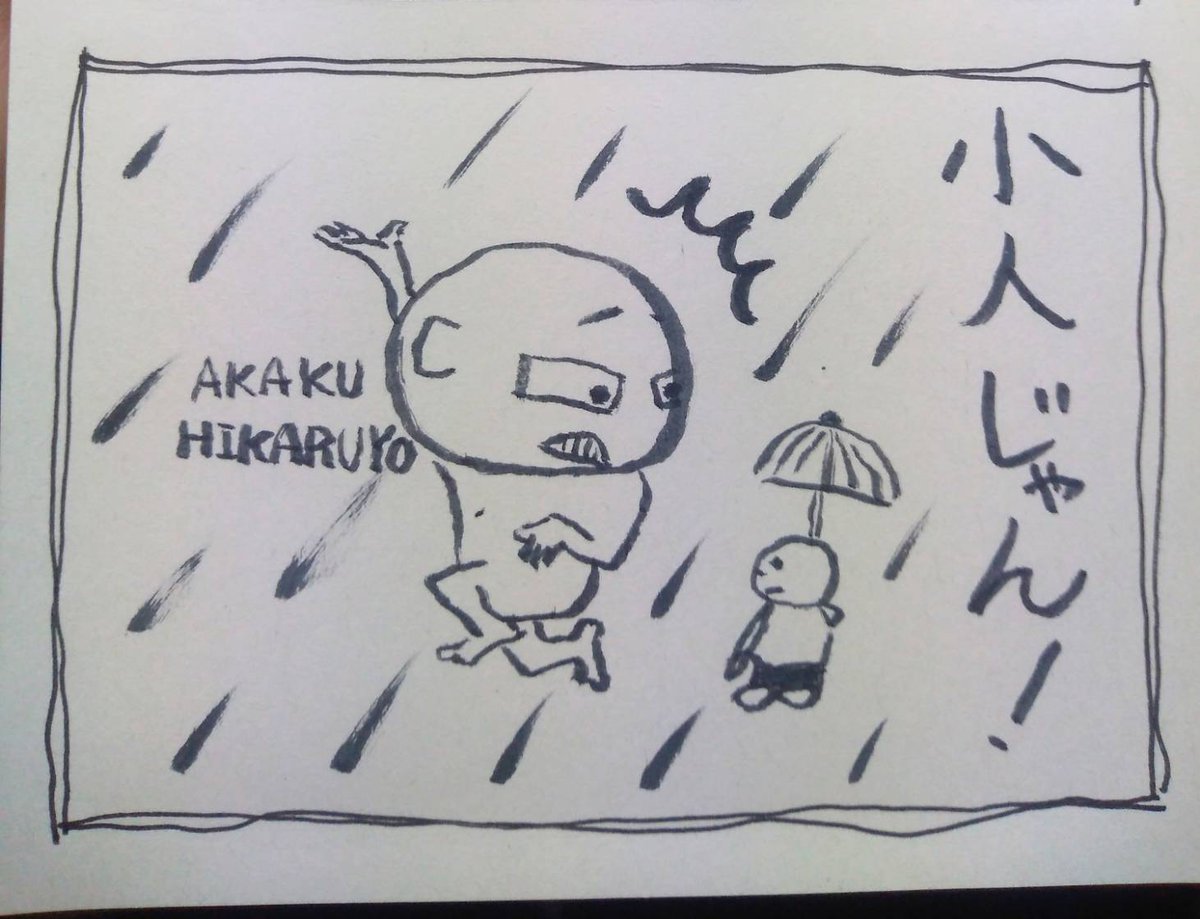 小人じゃん!
AKAKU
HIKARUYO